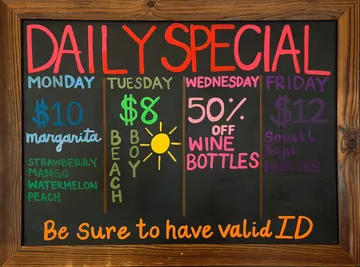 DAILY SPECIAL
MONDAY
$10
margarita
STRAWBERRY
MANGO
WATERMELON
PEACH
TUESDAY
$8
BEACH
BOY
WEDNESDAY
50%
OFF
WINE
BOTTLES
FRIDAY
$12
Small
Be Sure to have valid ID